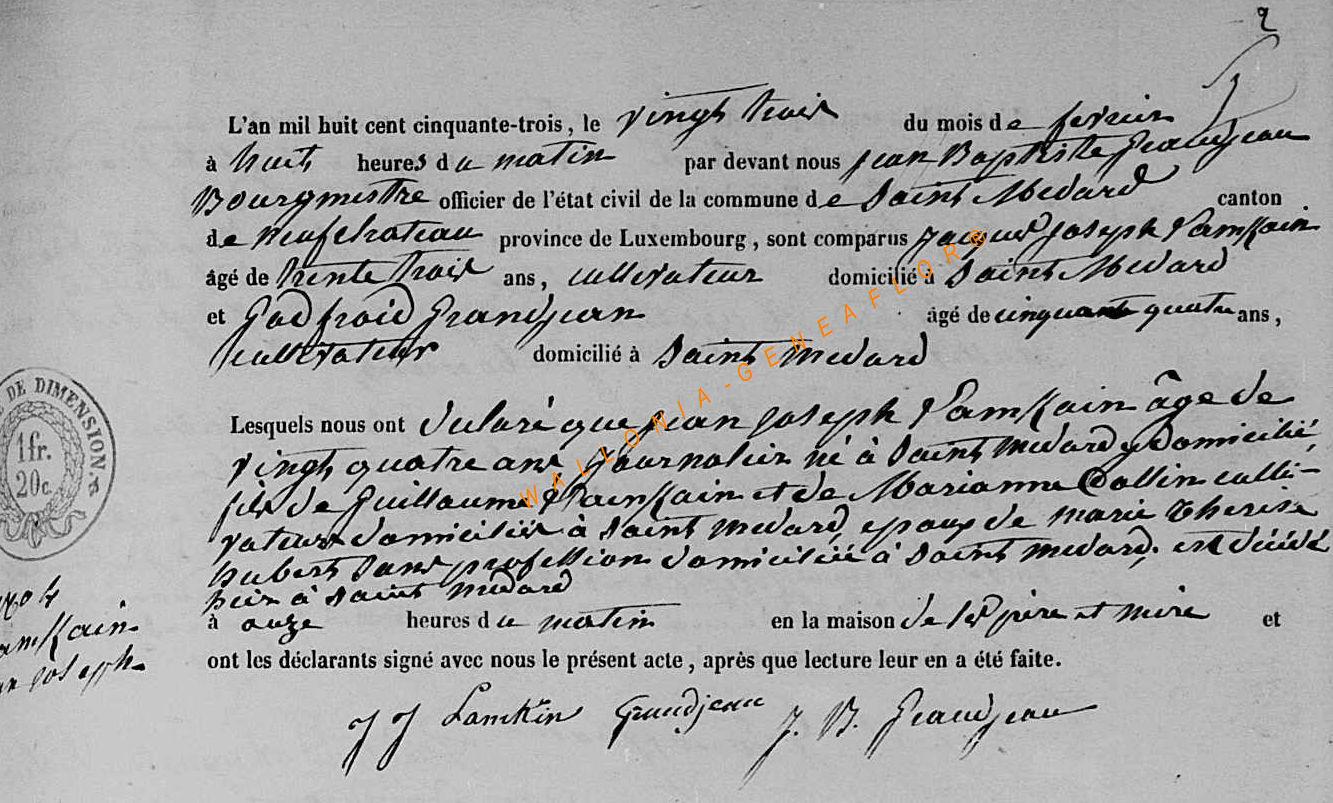 2
L'an mil huit cent cinquante-trois, le vingt trois du mois de fevrier
à huit heures du matin par devant nous jean Baptiste Grandjean
Bourgmestre officier de l'état civil de la commune de Saint Medard canton
de neufchateau province de Luxembourg, sont comparus jacques joseph Lamkain
âgé de trente trois ans, cultivateur domicilié à Saint Medard
et Godfroid Grandjean âgé de cinquante quatre ans,
cultivateur domicilié à Saint medard
DE DIMENSION
1 fr.
20 c.
Lesquels nous ont declaré que jean joseph Lamkain âge de
vingt quatre ans journalier né à Saint medard y domicilié,
fils de Guillaume Lamkain et de Marianne Collin culti-
vateurs domiciliés à Saint medard, epoux de marie therese
hubert sans profession domiciliée à Saint medard, est décédé
hier à Saint medard
à onze heures du matin en la maison de ses père et mère et
ont les déclarants signé avec nous le présent acte, après que lecture leur en a été faite.
J J Lamkin Grandjean J. B. Grandjean
joseph
WALLONIA-GENEAFLORE